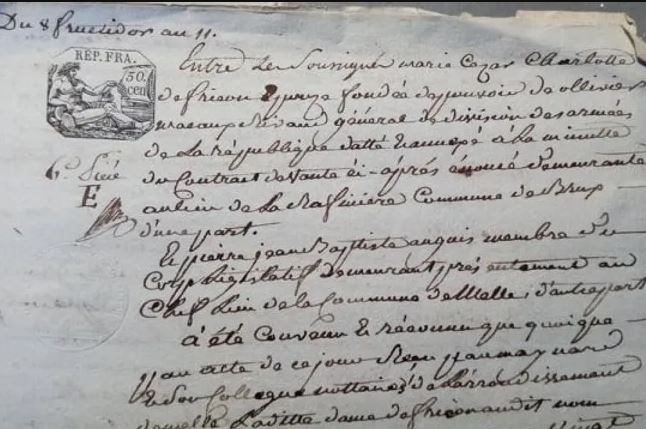 Du 8 fructidor an 11.
RÉP. FRA.
50.
cen
Entre Les Soussignés marie Cezar Charlotte
defricon Epouze fondée depouvoir de ollivier
macoux Rivaud général de division des armées
de La république datté Eannexé à La minutte
du Contrat devente ci-après énoncé demeurante
aulieu de La Raffiniere Commune de Brux
d'une part.
E
Et pierre jean Baptiste auguis membre du
Corps Législatif demeurant présentement au
Chef Lieu de la Commune de Melle, d'autre part
à été Convenu Et réconnu que quoique
par acte de cejour
Et son Collegue nottaires de L'arrondissement
demelle Laditte dame defricon audit nom
vingt